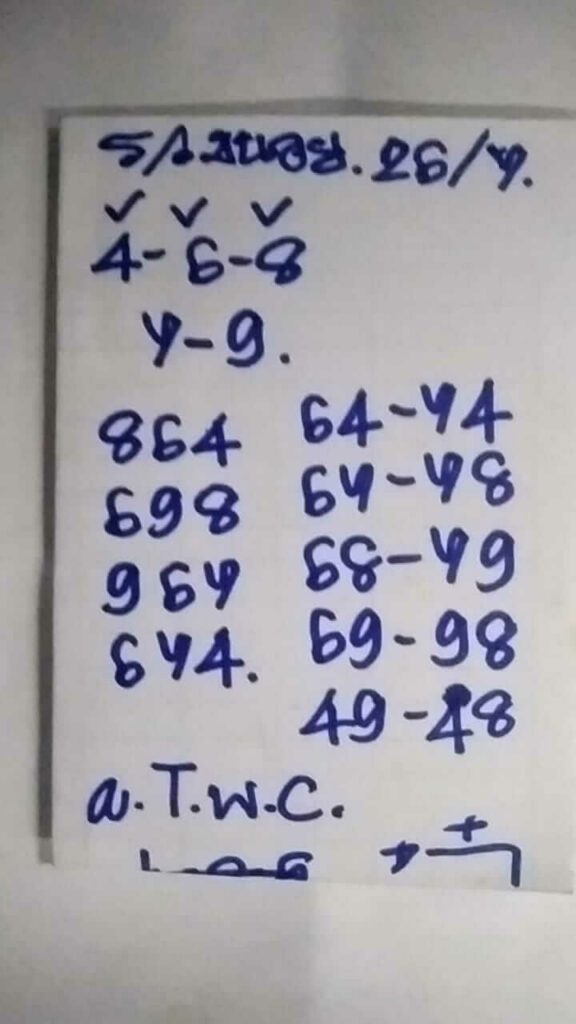 26/7.
4-6-8
7-9.
864 64-74
698 67-78
967 68-79
674. 69-98
49-48
a.T.W.C.